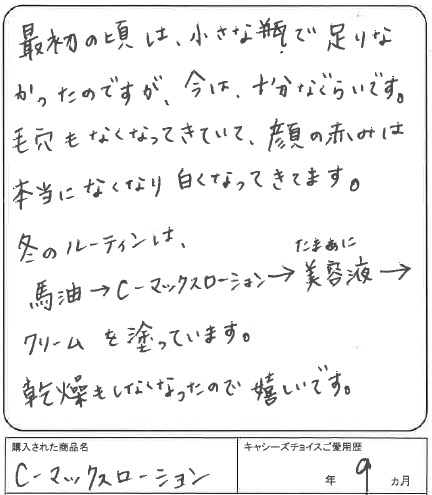 最初の頃は、小さな瓶で足りな
かったのですが、今は、十分なぐらいです。
毛穴もなくなってきていて、顔の赤みは
本当になくなり白くなってきてます。
冬のルーティンは、
たまあに
馬油→C-マックスローション→美容液→
クリームを塗っています。
乾燥もしなくなったので嬉しいです。
購入された商品名
C-マックスローション
キャシーズチョイスご愛用歴
年 9 ヵ月